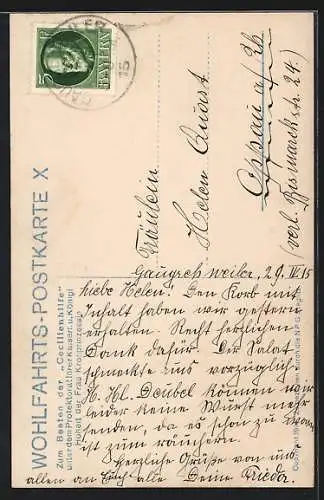 WOHLFAHRTS-POSTKARTE X
Zum Besten der „Cecilienhilfe"
unter dem Protektorat Ihrer Kaiserl. u. Königl.
Hoheit der Frau Kronprinzessin
5
BAYERN
15
Fräulein
Helen
Oppau a/Rh
(verl. Bismarckstr. 24.)
Gaugrehweiler, 29. III 15
Liebe Helen! Den Korb mit
Inhalt haben wir gestern
erhalten. Recht herzlichen
Dank dafür. Der Salat
schmeckte uns vorzüglich.
H. Hl. Deubel können wir
leider keine Wurst mehr
senden, da es schon zu warm
ist zum räuchern.
Herzliche Grüße von uns
allen an Euch alle Deine Frieda.